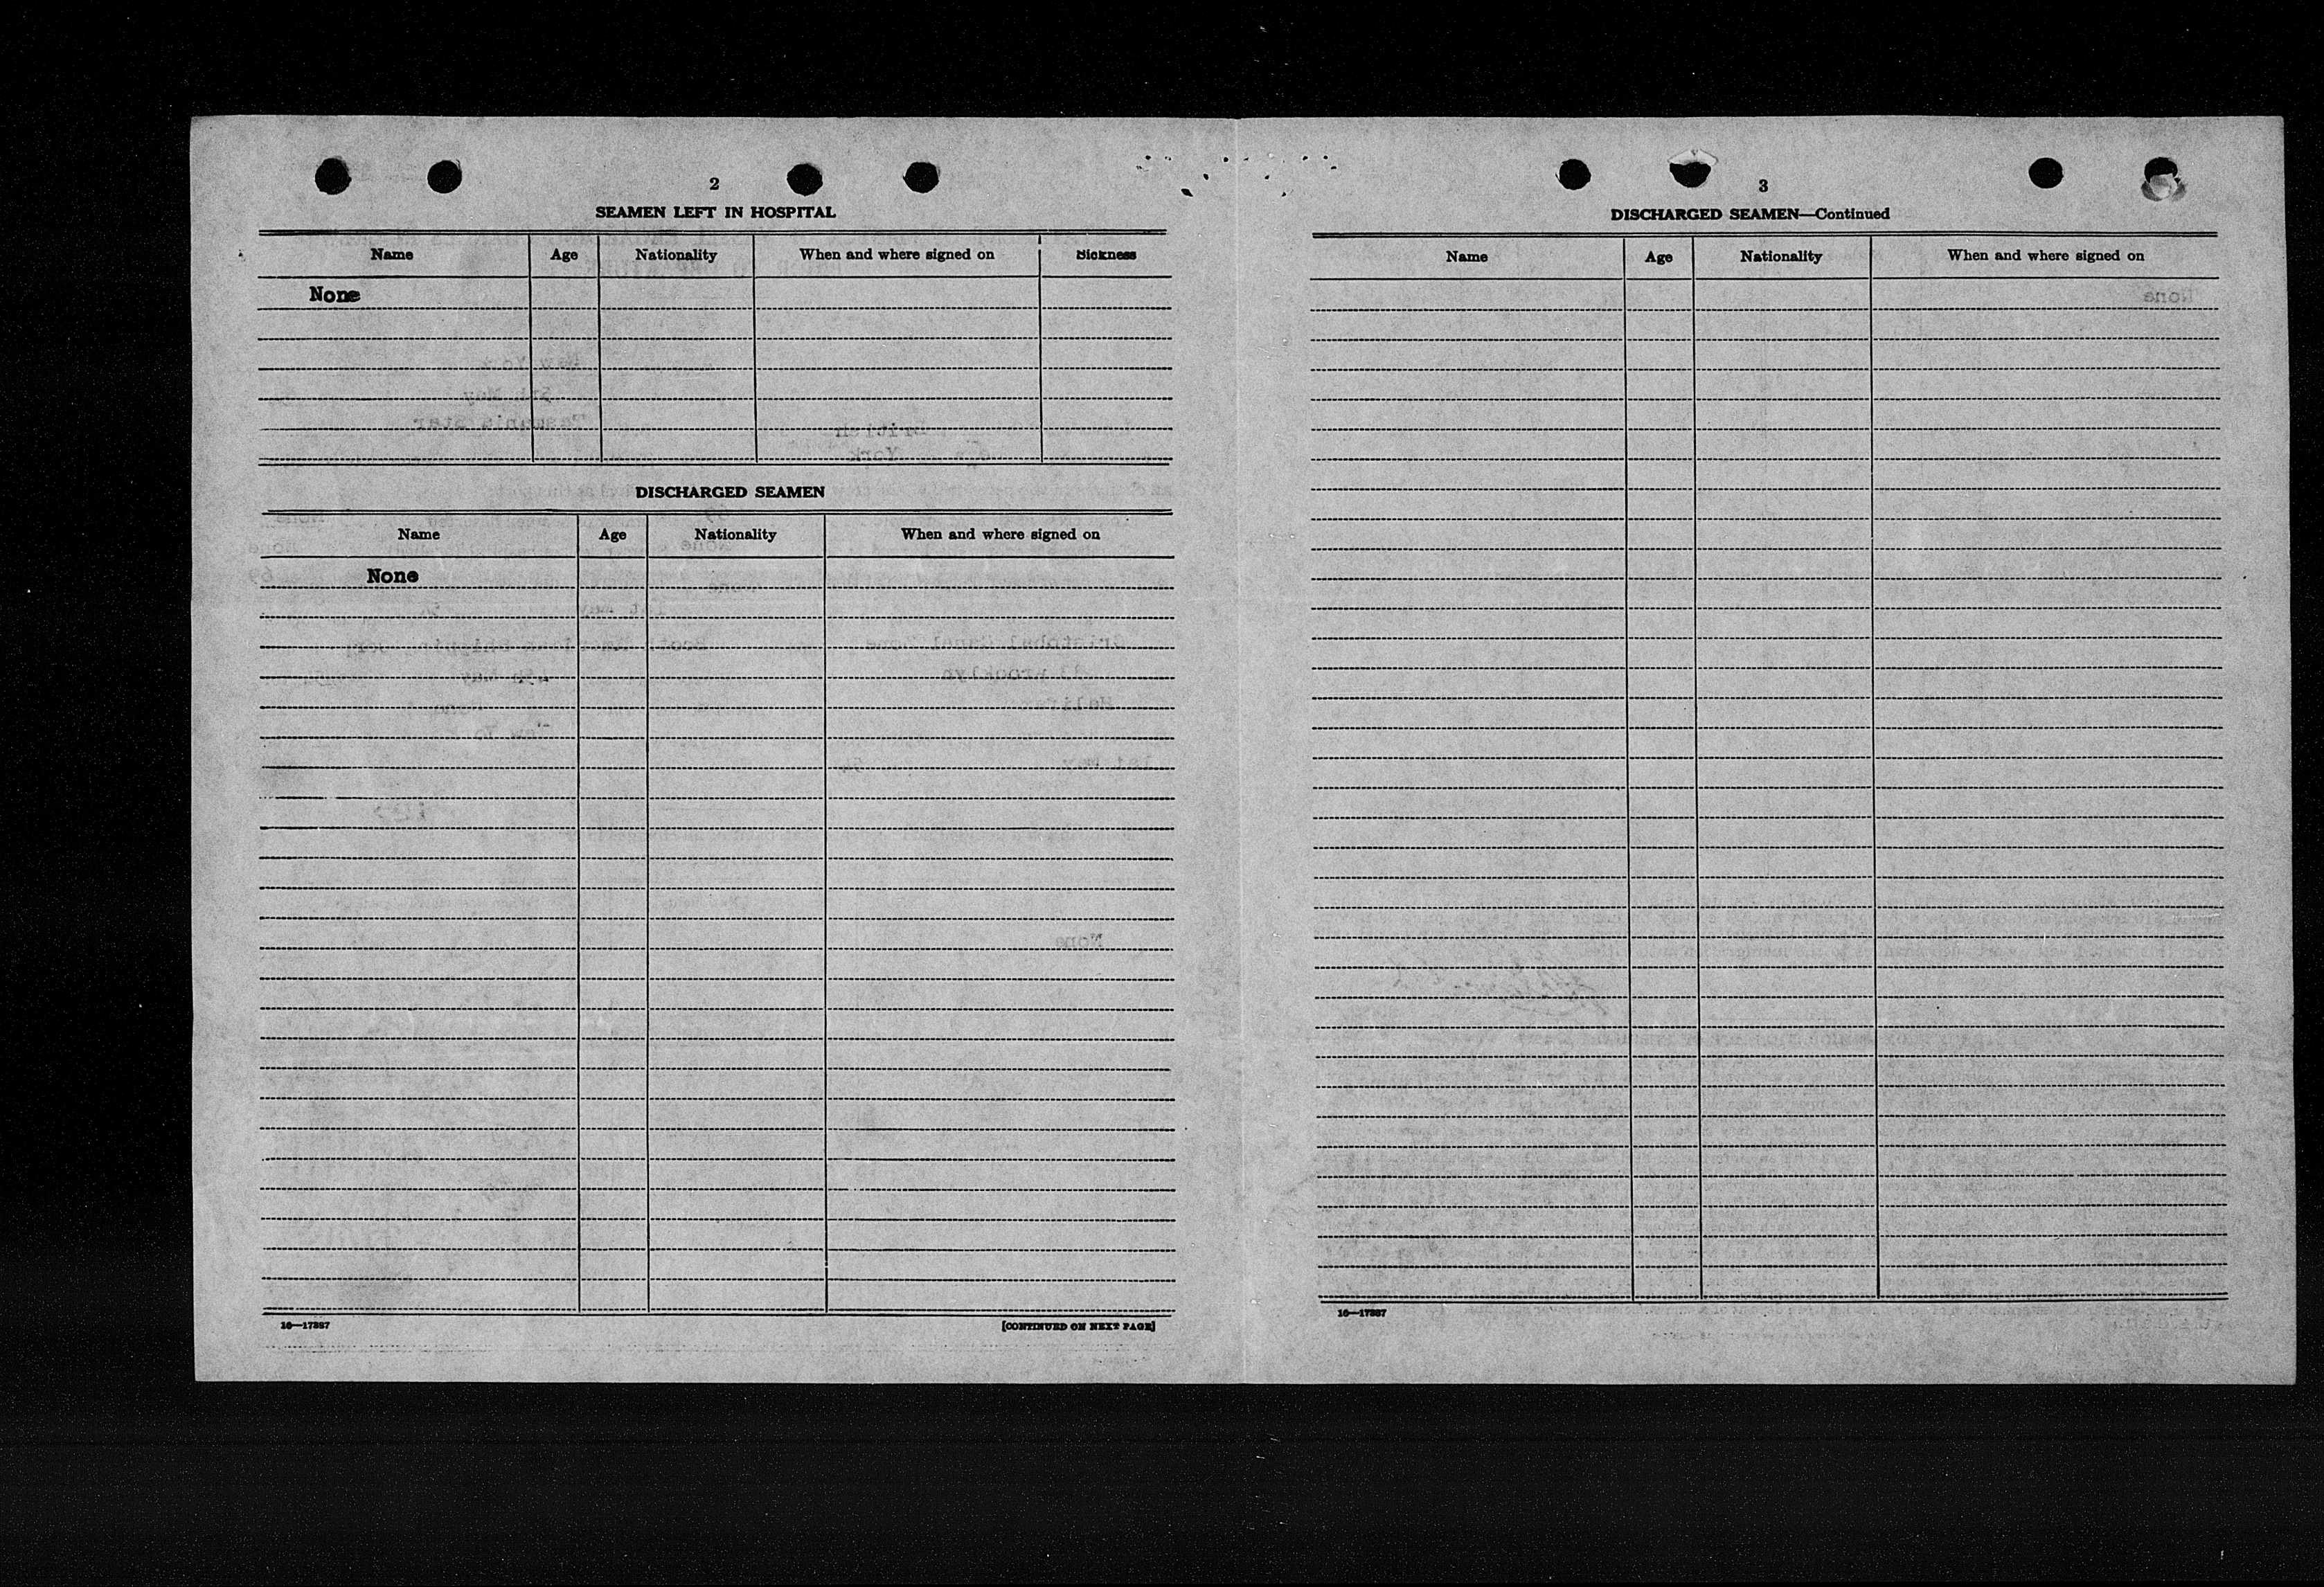 2
SEAMEN LEFT IN HOSPITAL
Name Age Nationality When and where signed on Sickness
None
DISCHARGED SEAMEN
Name Age Nationality When and where signed on
None
16—17387
[CONTINUED ON NEXT PAGE]
3
DISCHARGED SEAMEN—Continued
Name Age Nationality When and where signed on
16—17387